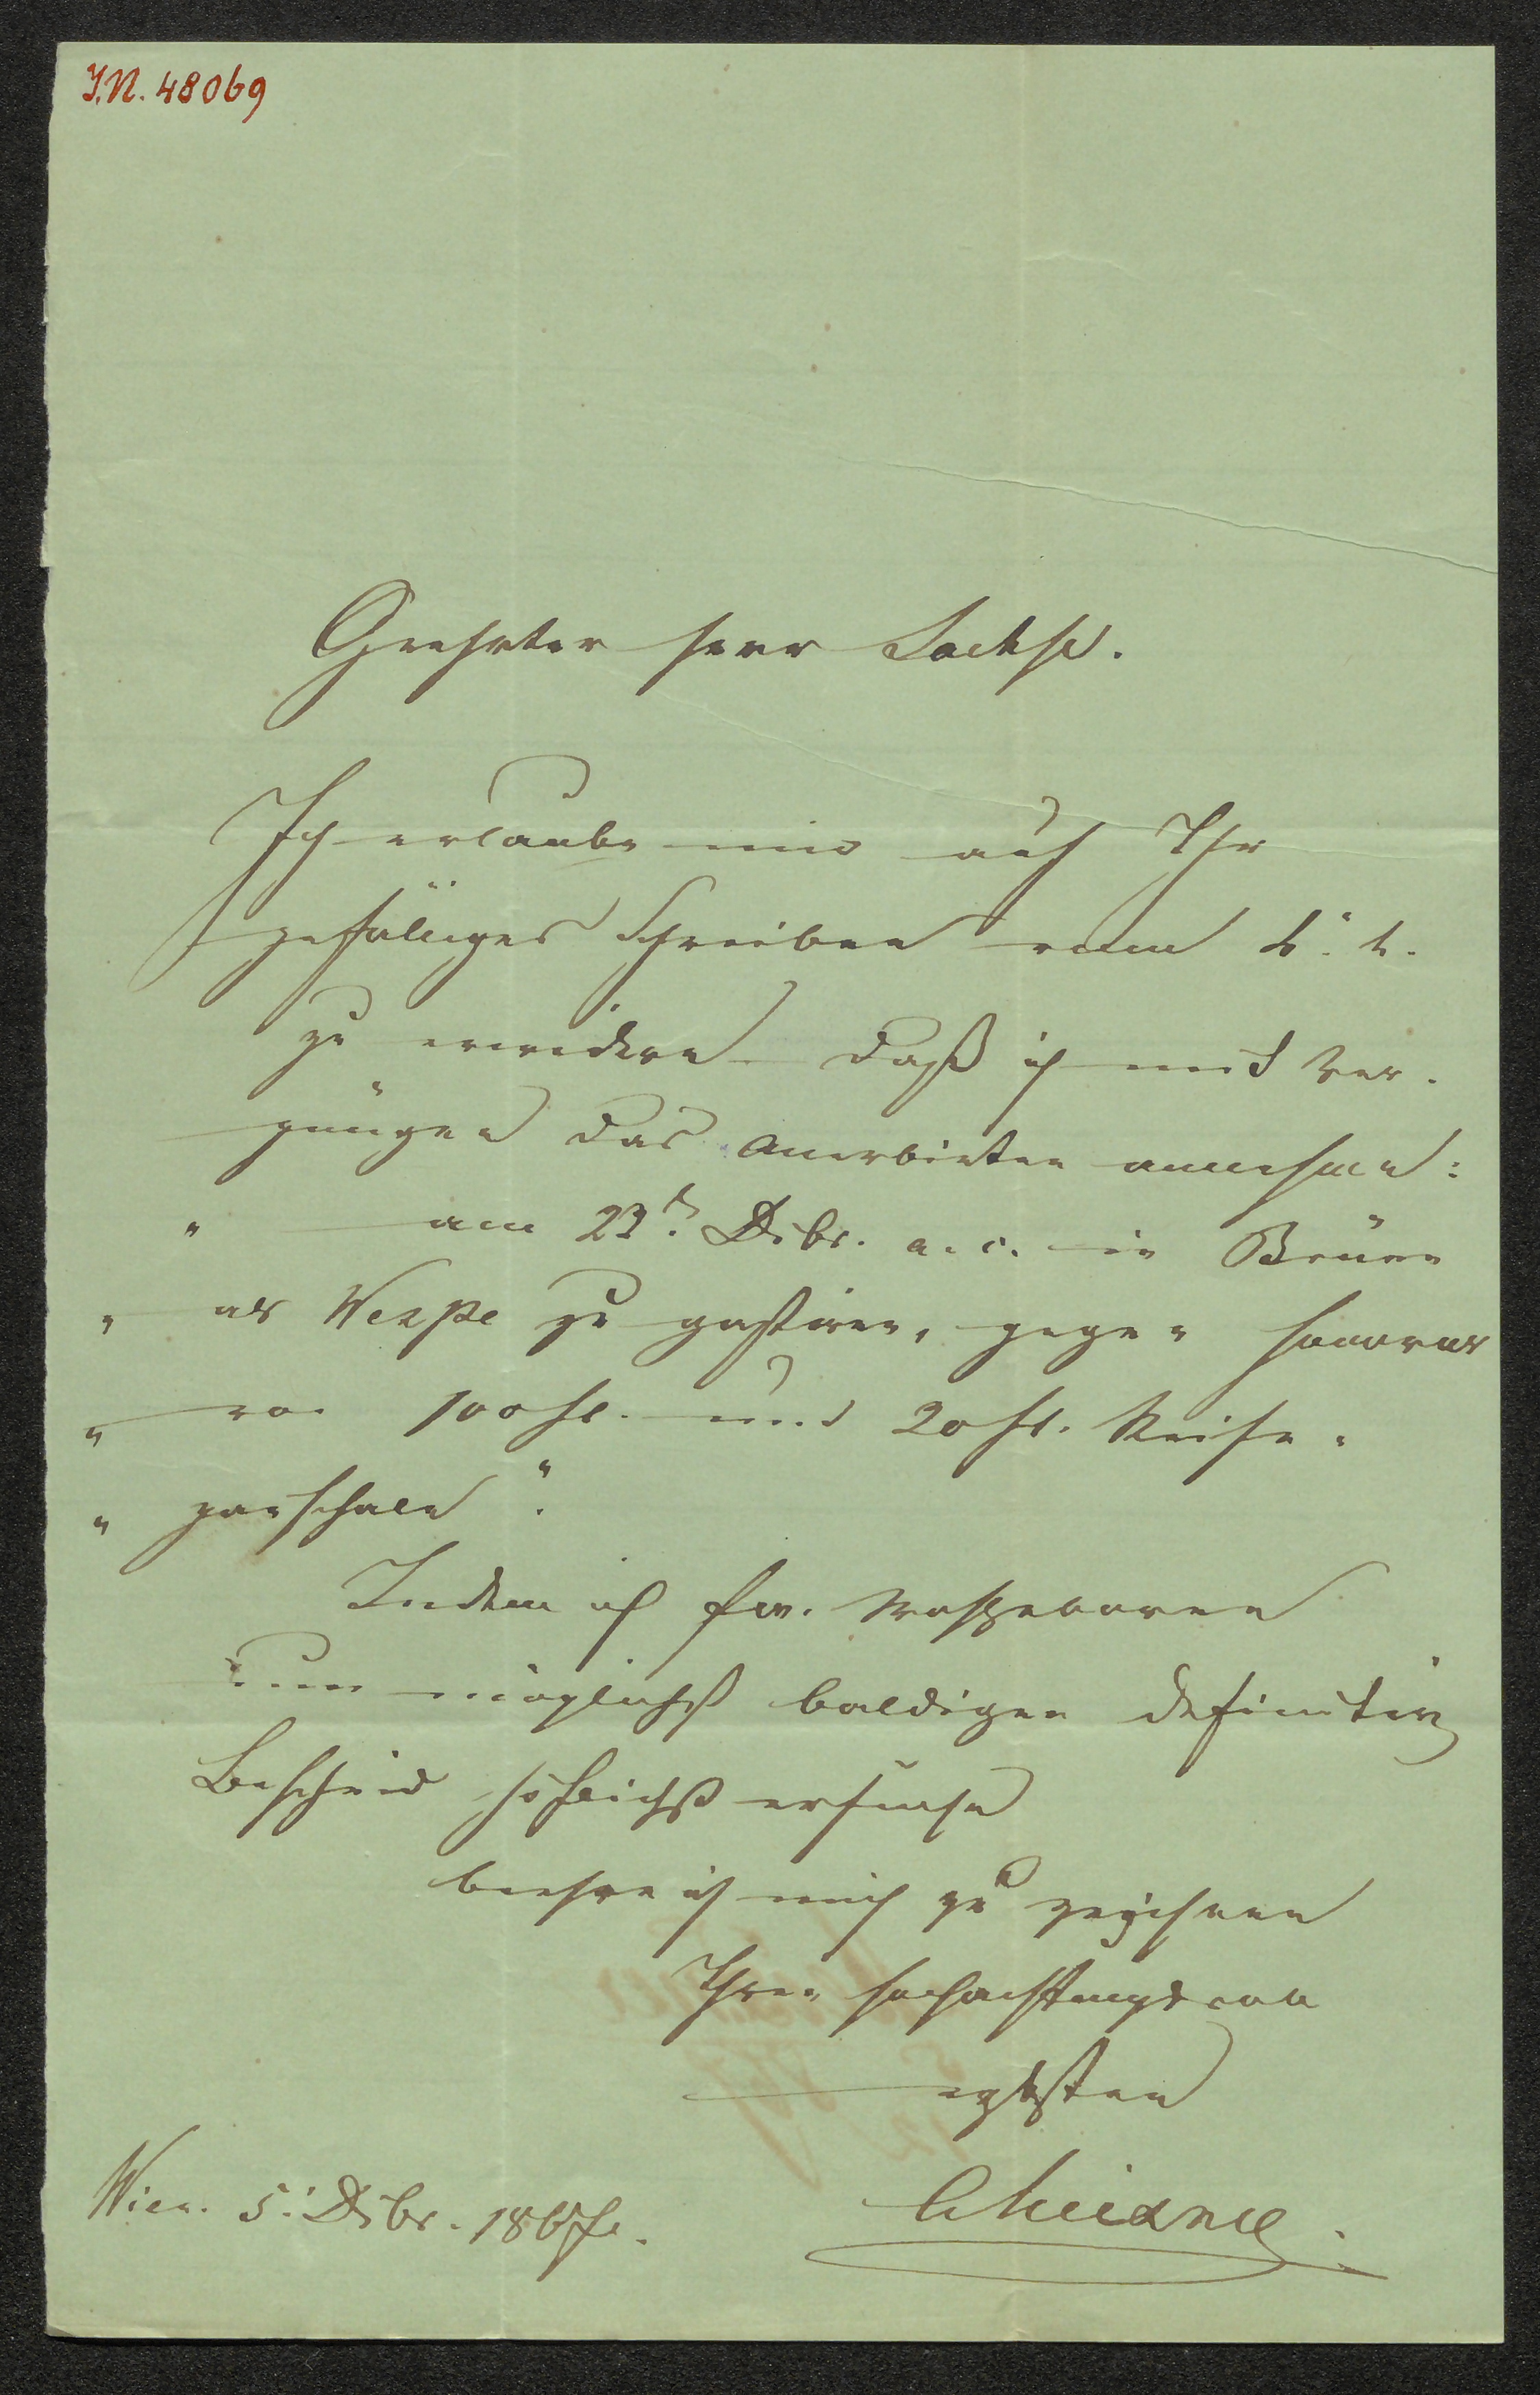 I.N. 48069
Geehrter Herr Sachse.
Ich erlaube mir auf Ihr
gefälliges Schreiben vom
zu erwidern daß ich mit Ver-
gnügen das Anerbieten annehme:
" am 23t. Dcbr. a. c. in Brünn
" als Wespe zu gastiren, gegen Honorar
" von 100 fl. und 20 fl. Reise-
" pauschale ".
Indem ich Ew. Wohlgeboren
um möglichst baldigen definitiven
Bescheid höflichst ersuche
beehre ich mich zu zeichnen
Ihren hochachtungsvoll
ergebensten
CMeixner.
Wien. 5. Dcbr. 1867.